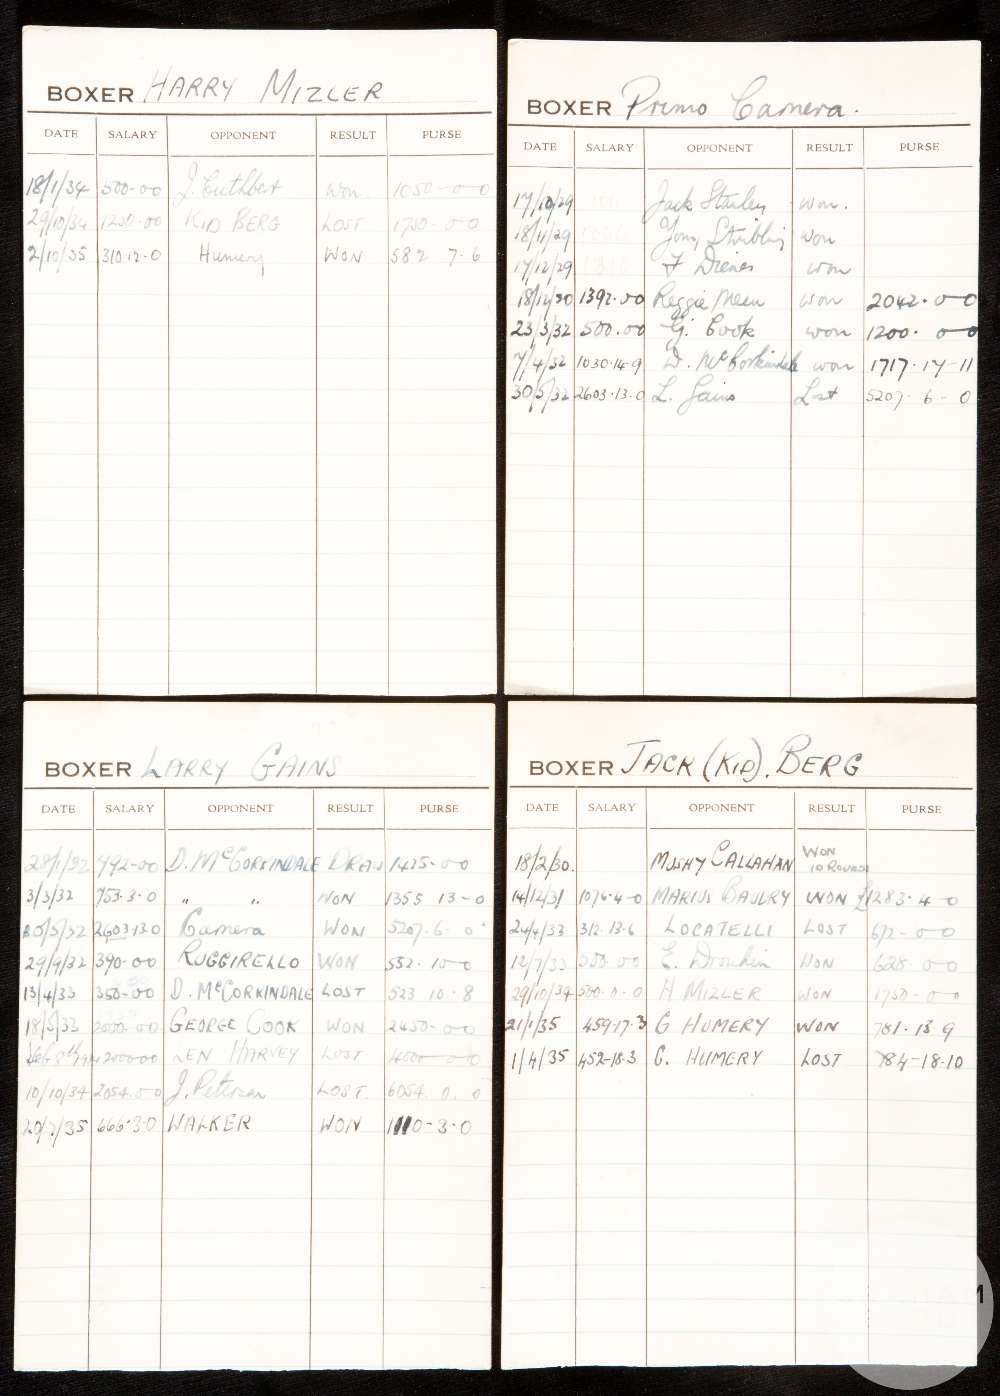 BOXER HARRY MIZLER
DATE SALARY OPPONENT RESULT PURSE
18/1/34 500-00 J. Cuthbert Won 1050-0-0
29/10/34 1250-00 KID BERG LOST 1750-0-0
2/10/35 310·12·0 Humery WON 582 7-6
BOXER Primo Carnera.
DATE SALARY OPPONENT RESULT PURSE
17/10/29 Jack Stanley won.
18/11/29 Young Stribling won
17/12/29 F Dienes won
18/12/30 1392·00 Reggie Meen won 2042·0-0
23/3/32 500·00 G. Cook won 1200·0-0
7/4/32 1030·14·9 D. McCorkindale won 1717·17-11
30/5/32 2603·13·0 L. Gains Lost 5207·6-0
BOXER LARRY GAINS
DATE SALARY OPPONENT RESULT PURSE
28/1/32 492-00 D. McCORKINDALE DRAW 1425-0-0
3/3/32 753·3·0 " " WON 1355 13-0
30/5/32 2603·13·0 Carnera WON 5207·6-0
29/9/32 390-00 RUGGIRELLO WON 552·10-0
13/4/33 350-00 D. McCORKINDALE LOST 523 10·8
18/5/33 2000-00 GEORGE COOK WON 2450-00
Feb 8th 1934 2000-00 LEN HARVEY LOST 4000-0-0
10/10/34 2054·0-0 J. Petersen LOST. 6054. 0. 0
20/7/35 666·3·0 WALKER WON 1110-3-0
BOXER JACK (KID). BERG
DATE SALARY OPPONENT RESULT PURSE
18/2/30. MUSHY CALLAHAN WON
10 ROUNDS
14/12/31 1076·4-0 MARIUS BAUDRY WON £1283·4-0
24/4/33 312·13·6 LOCATELLI LOST 672-0-0
12/7/33 550-00 E. Drouhin WON 628-0-0
29/10/34 500-0-0 H MIZLER WON 1750-0-0
21/1/35 459·17·3 G HUMERY WON 781·13 9
1/4/35 452-18·3 G. HUMERY LOST 784-18·10